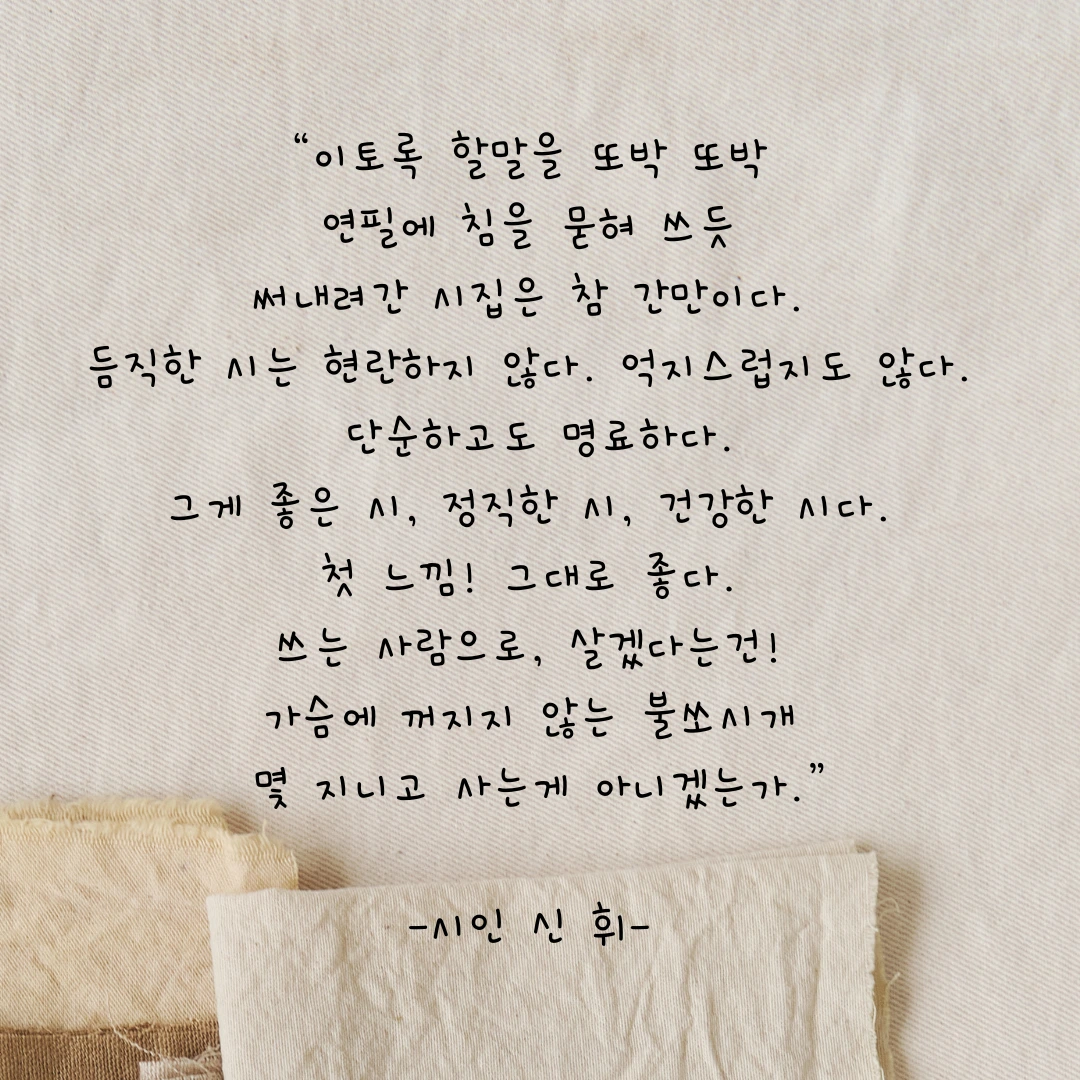 “이토록 할말을 또박 또박
연필에 침을 묻혀 쓰듯
써내려간 시집은 참 간만이다.
듬직한 시는 현란하지 않다. 억지스럽지도 않다.
단순하고도 명료하다.
그게 좋은 시, 정직한 시, 건강한 시다.
첫 느낌! 그대로 좋다.
쓰는 사람으로, 살겠다는건!
가슴에 꺼지지 않는 불쏘시개
몇 지니고 사는게 아니겠는가.”
-시인 신 휘-